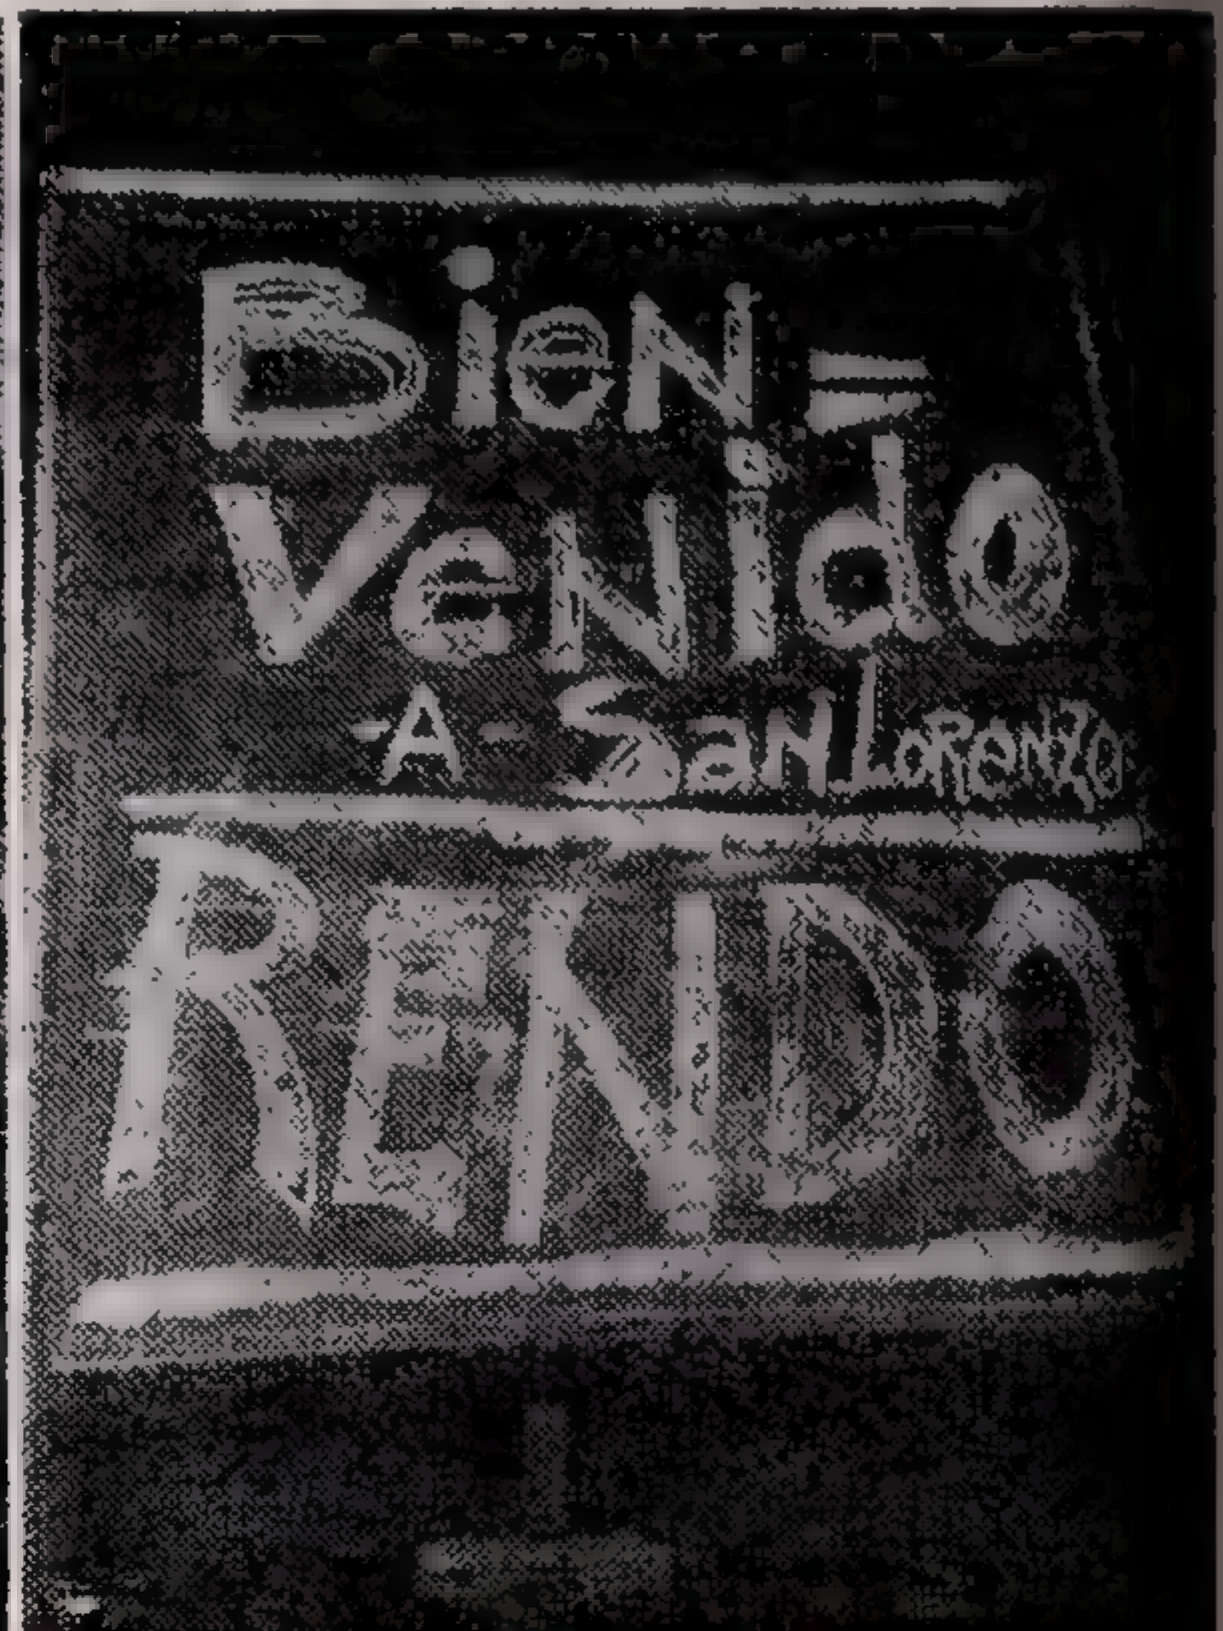 Bien=
Venido
-A- San Lorenzo
RENDO